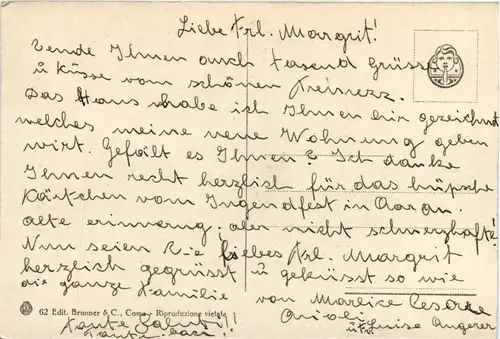 Liebe Frl. Margrit!
Sende Ihnen auch tasend Grüsse
u küsse vom schönen
Das Haus habe ich Ihnen hir gezeichnet
welches meine neue Wohnung geben
wirt. Gefällt es Ihnen? Ich danke
Ihnen recht herzlich für das hüpsche
Kärtchen vom Jugendfest in Aarau.
alte erinnerung: aber nicht schmerzhafte!
Nun seien Sie liebes Frl. Margrit
herzlich gegrüsst u geküsst so wie
die ganze Familie
von
62 Edit. Brunner & C., Como - Riproduzione vietata
Tante Saluti!!
Tanti baci!!
Luise Angerer